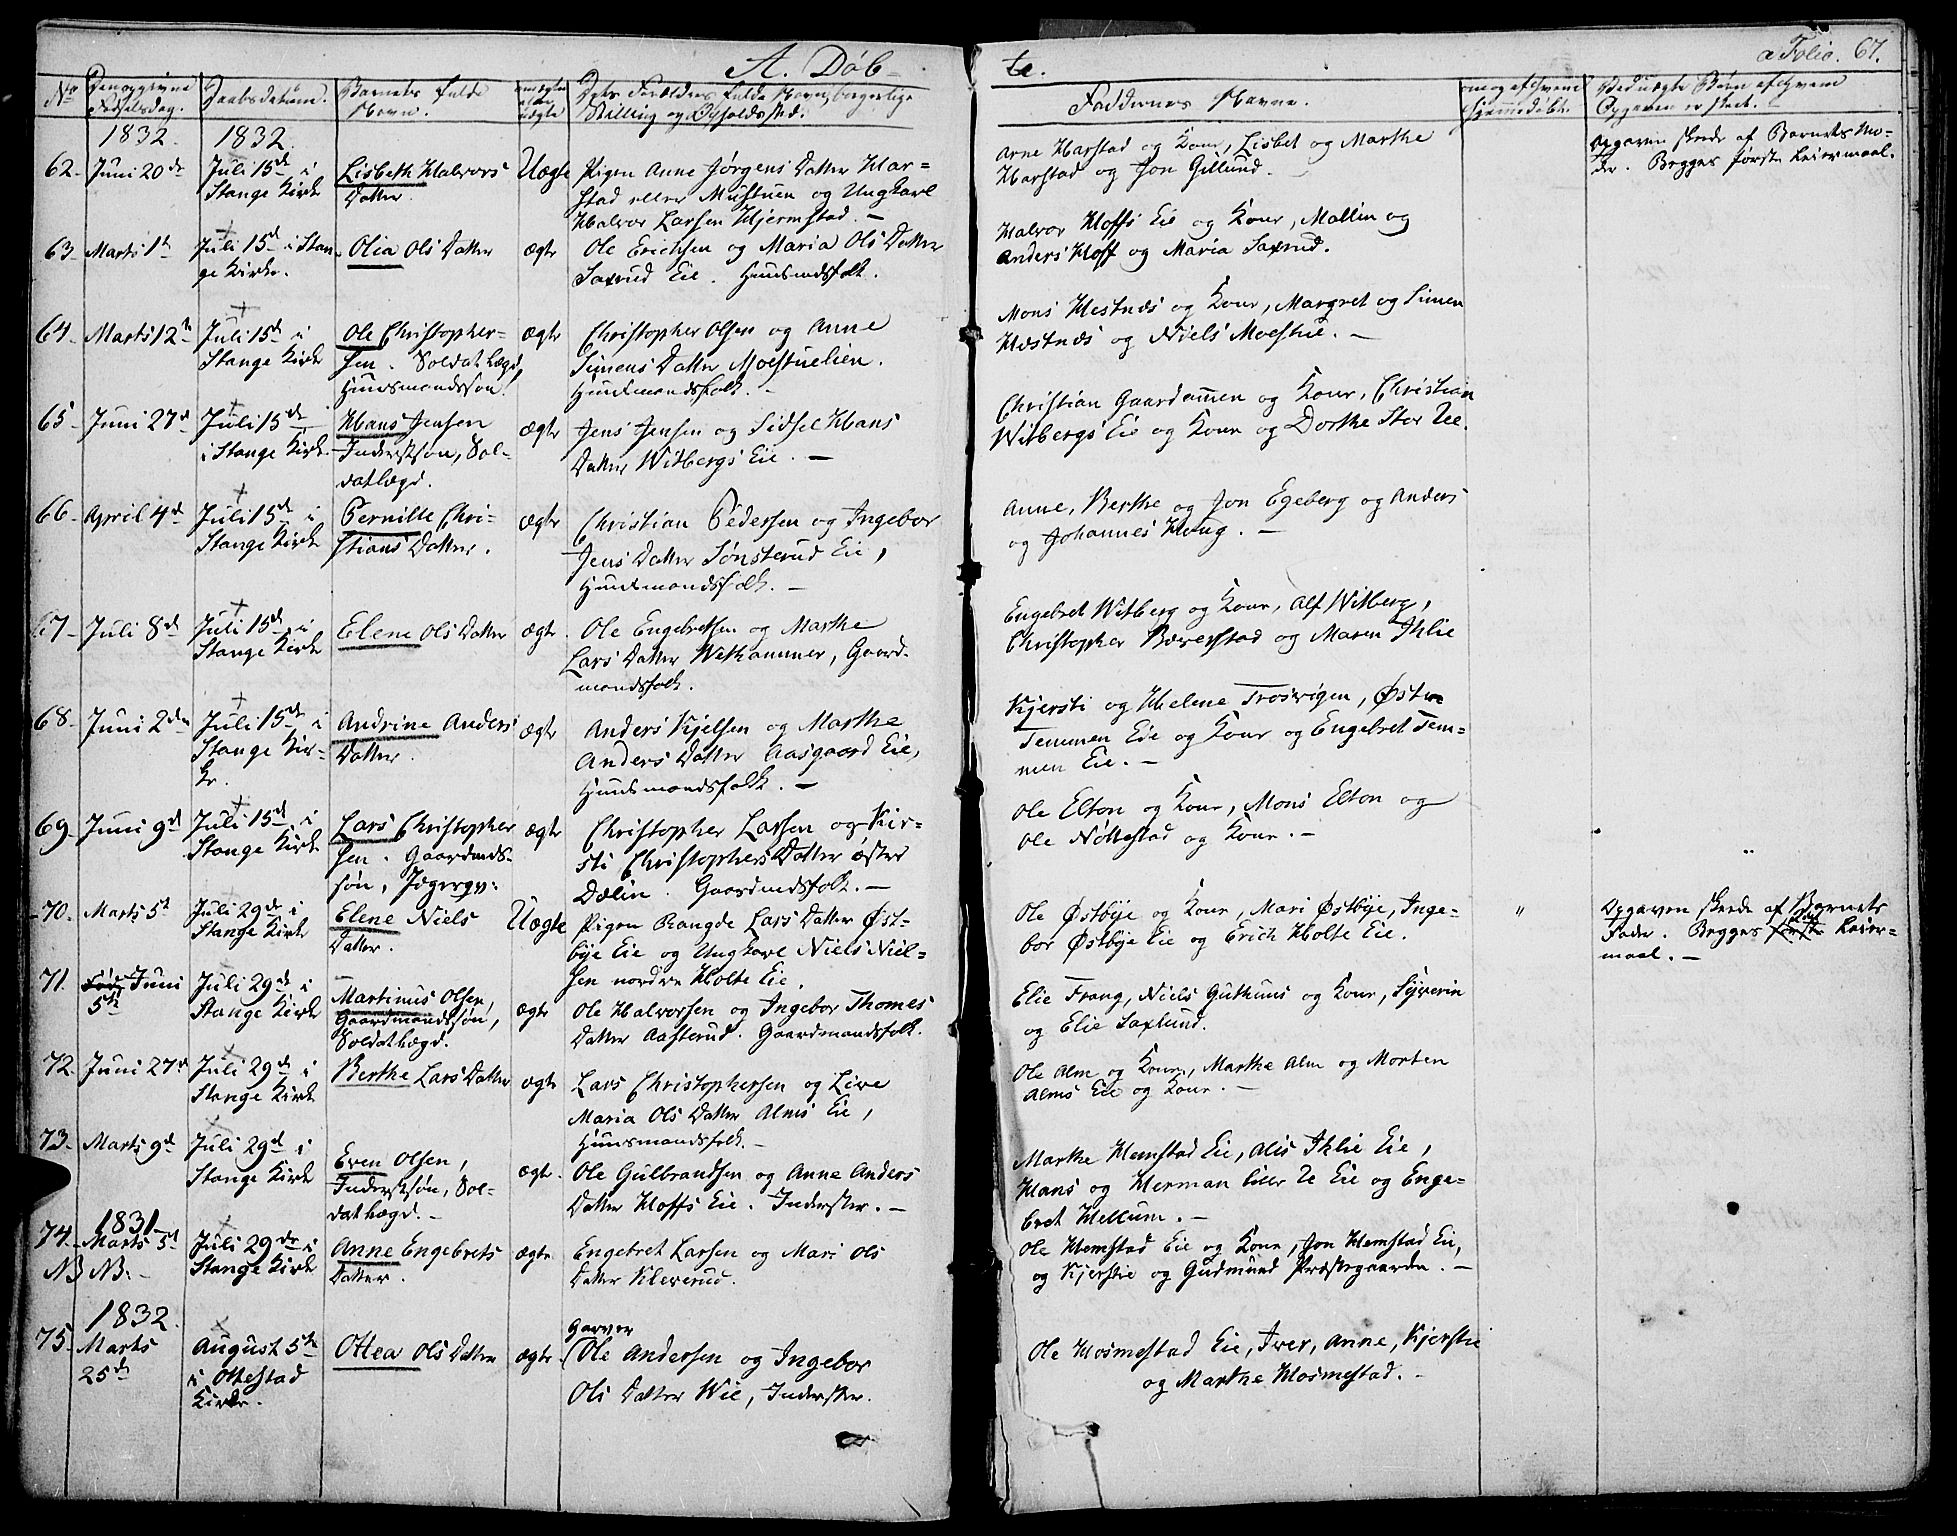 A. Døbte.
a Folio. 67.
No
Den opgivne Fødselsdag.
Daabsdatum.
Barnets fulde Navn.
uægte eller ægte
Dets Forældres fulde Navn, borgerlige Stilling og Opholdssted.
Faddernes Navne.
om og af hvem hjemmedøbt.
Ved uægte Børn af hvem Opgaven er skeet.
1832.
1832.
62. Juni 20de
Juli 15de i
Stange Kirke
Lisbeth Halvors
Datter.
Uægte
Pigen Anne Jørgens Datter Har-
stad eller Mustuen og Ungkarl
Halvor Larsen Hjermstad. —
Arne Harstad og Kone, Lisbet og Marthe
Harstad og Jon Gillund.
Opgaven skede af Barnets Mo-
der. Begges første Leiermaal.
63. Marts 1te
Juli 15de i Stan-
ge Kirke.
Olia Ols Datter
ægte
Ole Erichsen og Maria Ols Datter
Saxrud Eie. Huusmdsfolk.
Halvor Hoffs Eie og Kone, Mallin og
Anders Hoff og Maria Saxrud.
64. Marts 12te
Juli 15de i
Stange Kirke
Ole Christopher-
sen. Soldat Lægd,
Huusmandssøn.
ægte
Christopher Olsen og Anne
Simens Datter Moestuelien.
Huusmandsfolk. —
Mons Hestnæs og Kone, Margret og Simen
Hestnæs og Niels Moestue. —
65. Juni 27de
Juli 15de
i Stange Kirke.
Hans Jensen
Inderstsøn, Sol-
datlægd.
ægte
Jens Jensen og Sidsel Hans
Datter Witbergs Eie. —
Christian Gaardammen og Kone, Christian
Witbergs Eie og Kone og Dorthe Stor Ree.
66. April 4de
Juli 15de i
Stange Kirke
Pernille Chri-
stians Datter.
ægte
Christian Pedersen og Ingebor
Jens Datter Sønsterud Eie,
Huusmandsfolk. —
Anne, Berthe og Jon Egeberg og Anders
og Johannes Houg. —
67. Juli 8de
Juli 15de i
Stange Kirke
Elene Ols Datter
ægte.
Ole Engebretsen og Marthe
Lars Datter Wethammer, Gaard-
mandsfolk.
Engebret Witberg og Kone, Alf Witberg,
Christopher Bæverstad og Maren Ihlie
68. Juni 2den
Juli 15de i
Stange Kir-
ke.
Andrine Anders
Datter.
ægte
Anders Kjelsen og Marthe
Anders Datter Aasgaard Eie,
Huusmandsfolk. —
Kjersti og Helene Trosvigen, Østre
Temmen Eie og Kone og Engebret Tem-
men Eie. —
69. Juni 9de
Juli 15de i
Stange Kirke
Lars Christopher
sen. Gaardmds-
søn,
ægte
Christopher Larsen og Kir-
sti Christophers Datter østre
Dælin. Gaardmdsfolk. —
Ole Elton og Kone, Mons Elton og
Ole Nøttestad og Kone. —
70. Marts 5te
Juli 29de i
Stange Kirke
Elene Niels
Datter.
Uægte
Pigen Rangde Lars Datter Øst-
bye Eie og Ungkarl Niels Niel-
sen nordre Holte Eie.
Ole Østbye og Kone, Mari Østbye, Inge-
bor Østbye Eie og Erich Holte Eie.
Opgaven skede af Barnets
Fader. Begges første Leier-
maal. —
71. Juni
5te
Juli 29de i
Stange Kirke
Martinus Olsen,
Gaardmandssøn,
Soldatlægd.
ægte
Ole Halvorsen og Ingebor Thomes
Datter Aasterud. Gaardmandsfolk.
Elie Frang, Niels Guthuus og Kone, Syverin
og Elie Saxlund.
72. Juni 27de
Juli 29de i
Stange Kirke
Berthe Lars Datter
ægte
Lars Christophersen og Live
Maria Ols Datter Alms Eie,
Huusmandsfolk. —
Ole Alm og Kone, Marthe Alm og Morten
Alms Eie og Kone. —
73. Marts 9de
Juli 29de i
Stange Kirke
Even Olsen,
Inderstsøn, Sol-
datlægd. —
ægte.
Ole Gulbrandsen og Anne Anders
Datter Hoffs Eie. Inderster. —
Marthe Hemstad Eie, Alis Ihlie Eie,
Hans og Herman lille Re Eie og Enge-
bret Hellum. —
1831.
74. Marts 5te
NB NB. —
Juli 29de i
Stange Kirke
Anne Engebrets
Datter.
ægte.
Engebret Larsen og Mari Ols
Datter Kleverud.
Ole Hemstad Eie og Kone, Jon Hemstad Eie,
og Kjerstie og Gudmund Præstegaarden. —
1832.
75. Marts
25de
August 5te
i Ottestad
Kirke.
Ottea Ols Datter
ægte.
Garver
Ole Andersen og Ingebor
Ols Datter Wie, Inderster.
Ole Hosmestad Eie, Iver, Anne, Kjerstie
og Marthe Hosmestad. —